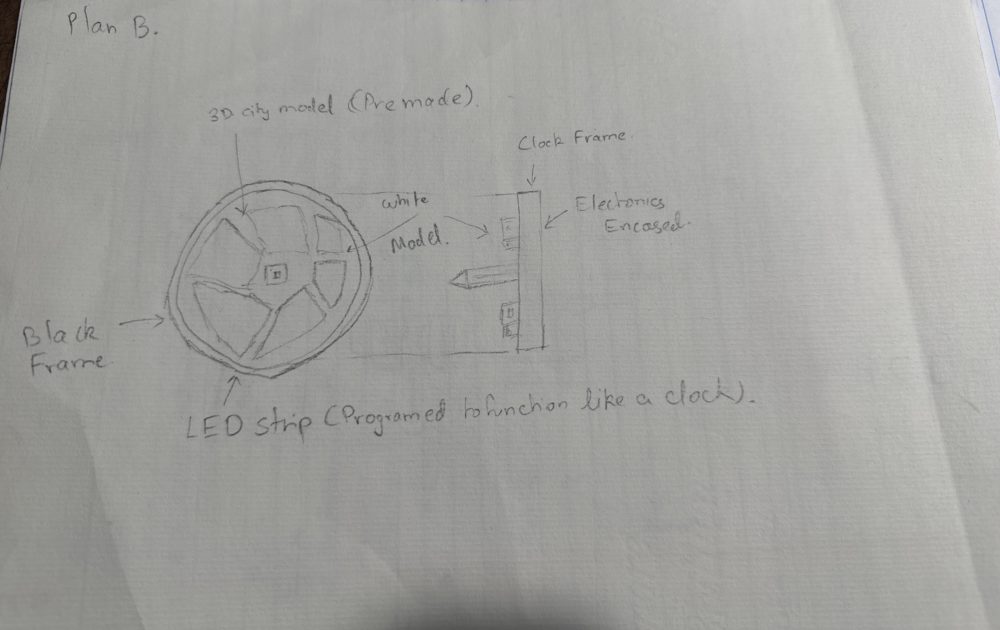 Plan B.
3D city model (Premade).
Clock Frame.
White
Model.
Electronics
Encased.
Black
Frame.
LED strip (Programed to function like a clock).